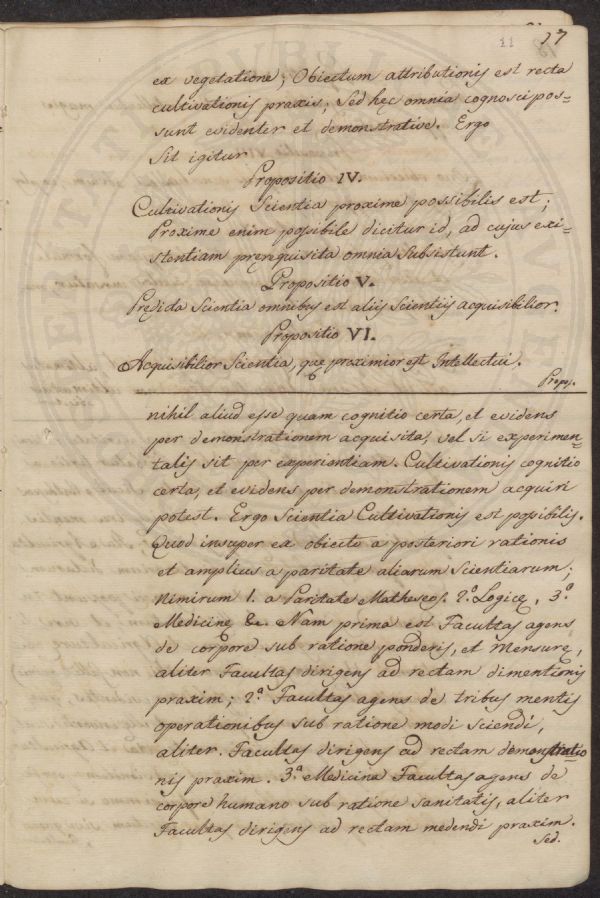 11 17
ex vegetatione; Obiectum attributionis est recta
cultivationis praxis; Sed hęc omnia cognosci pos=
sunt evidenter et demonstrative. Ergo
Sit igitur
Propositio IV.
Cultivationis Scientia proxime possibilis est;
Proxime enim possibile dicitur id, ad cujus exi=
stentiam pręrequisita omnia Subsistunt.
Propositio V.
Prędicta Scientia omnibus est aliis Scientiis acquisibilior.
Propositio VI.
Acquisibilior Scientia, quę proximior est Intellectui.
Propos.
nihil aliud esse quam cognitio certa, et evidens
per demonstrationem acquisita, vel si experimen=
talis sit per experientiam. Cultivationis cognitio
certa, et evidens per demonstrationem acquiri
potest. Ergo Scientia Cultivationis est possibilis.
Quod insuper ex obiecto a posteriori rationis
et amplius a paritate aliarum Scientiarum;
Nimirum 1. a Paritate Matheseos. 2.º Logicę, 3.º
Medicinę &c. Nam prima est Facultas agens
de corpore sub ratione ponderis, et mensurę,
aliter Facultas dirigens ad rectam dimentionis
praxim; 2.ª Facultas agens de tribus mentis
operationibus sub ratione modi sciendi,
aliter. Facultas dirigens ad rectam demonstratio
nis praxim. 3.ª Medicina Facultas agens de
corpore humano sub ratione sanitatis, aliter
Facultas dirigens ad rectam medendi praxim.
Sed.